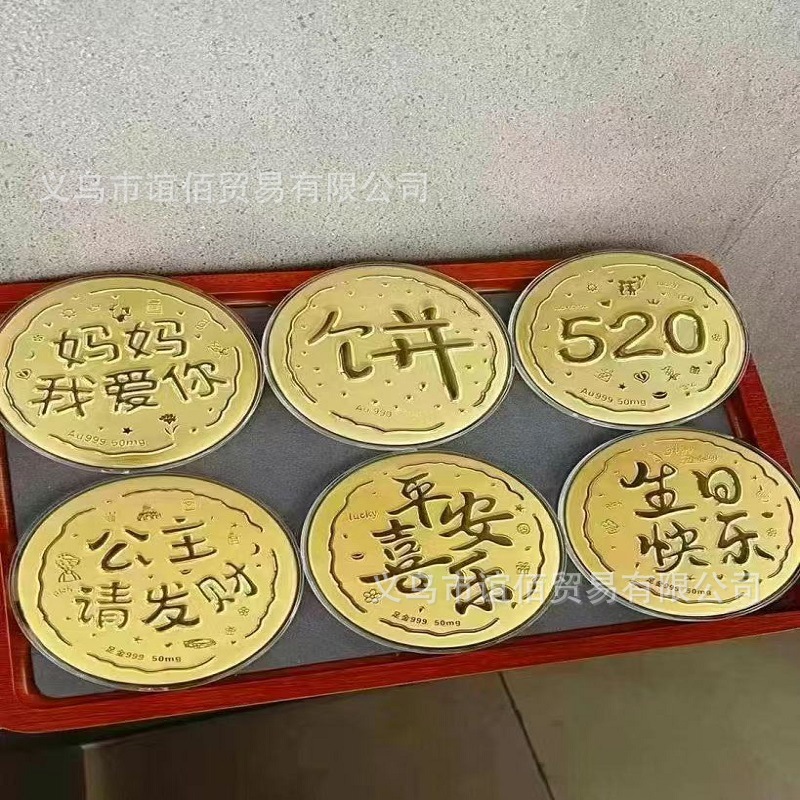 义乌市谊佰贸易有限公司
妈妈
我爱你
Au999 50mg
饼
Au 999
520
Au999 50mg
公主
请发财
足金999 50mg
lucky
平安
喜乐
足金999 50mg
生日
快乐
足金999 50mg
义乌市谊佰贸易有限公司